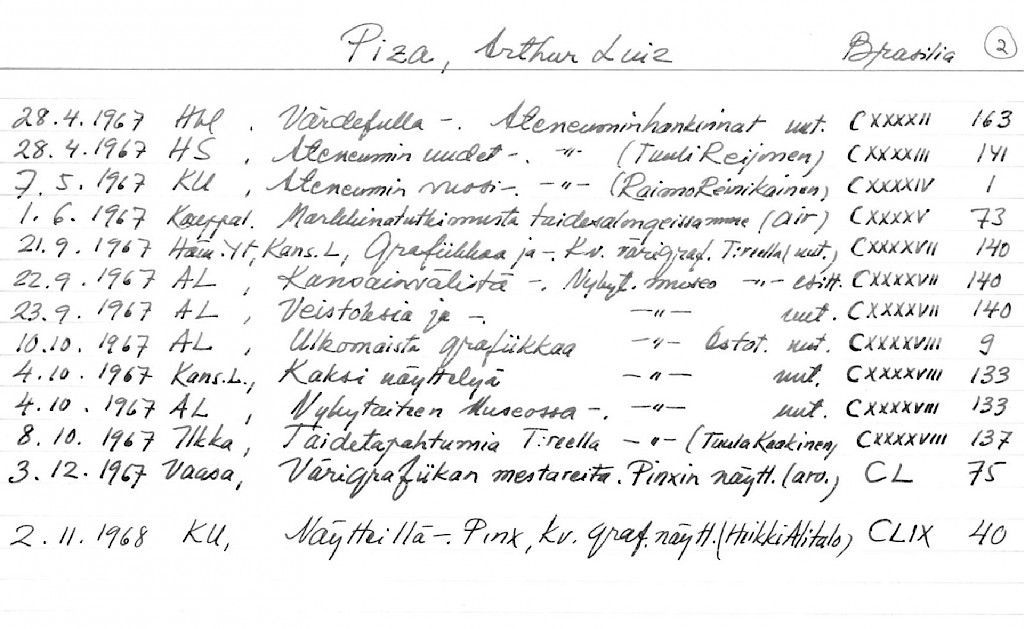 Piza, Arthur Luiz Brasilia 2
28.4.1967 Hbl, Värdefulla -. Ateneuminhankinnat uut. CXXXXII 163
28.4.1967 HS, Ateneumin uudet -. -"- (Tuuli Reijonen) CXXXXIII 141
7.5.1967 KU, Ateneumin vuosi -. -"- (Raimo Reinikainen) CXXXXIV 1
1.6.1967 Kauppal. Markkinatutkimusta taidesalongeissamme (air) CXXXXV 73
21.9.1967 Häm.Yt, Kans.L, Grafiikkaa ja -. Kv. värigraf. T:reella (uut.) CXXXXVII 140
22.9.1967 AL, Kansainvälistä -. Nykyt. museo -"- esitt. CXXXXVII 140
23.9.1967 AL, Veistoksia ja -. -"- uut. CXXXXVII 140
10.10.1967 AL, Ulkomaista grafiikkaa -"- Ostot. uut. CXXXXVIII 9
4.10.1967 Kans.L., Kaksi näyttelyä -"- uut. CXXXXVIII 133
4.10.1967 AL, Nykytaiteen Museossa -. -"- uut. CXXXXVIII 133
8.10.1967 Ilkka, Taidetapahtumia T:reella -"- (Tuula Kaakinen) CXXXXVIII 137
3.12.1967 Vaasa, Värigrafiikan mestareita. Pinxin näytt. (aro.) CL 75
2.11.1968 KU, Näytteillä -. Pinx, kv. graf. näytt. (Heikki Alitalo) CLIX 40